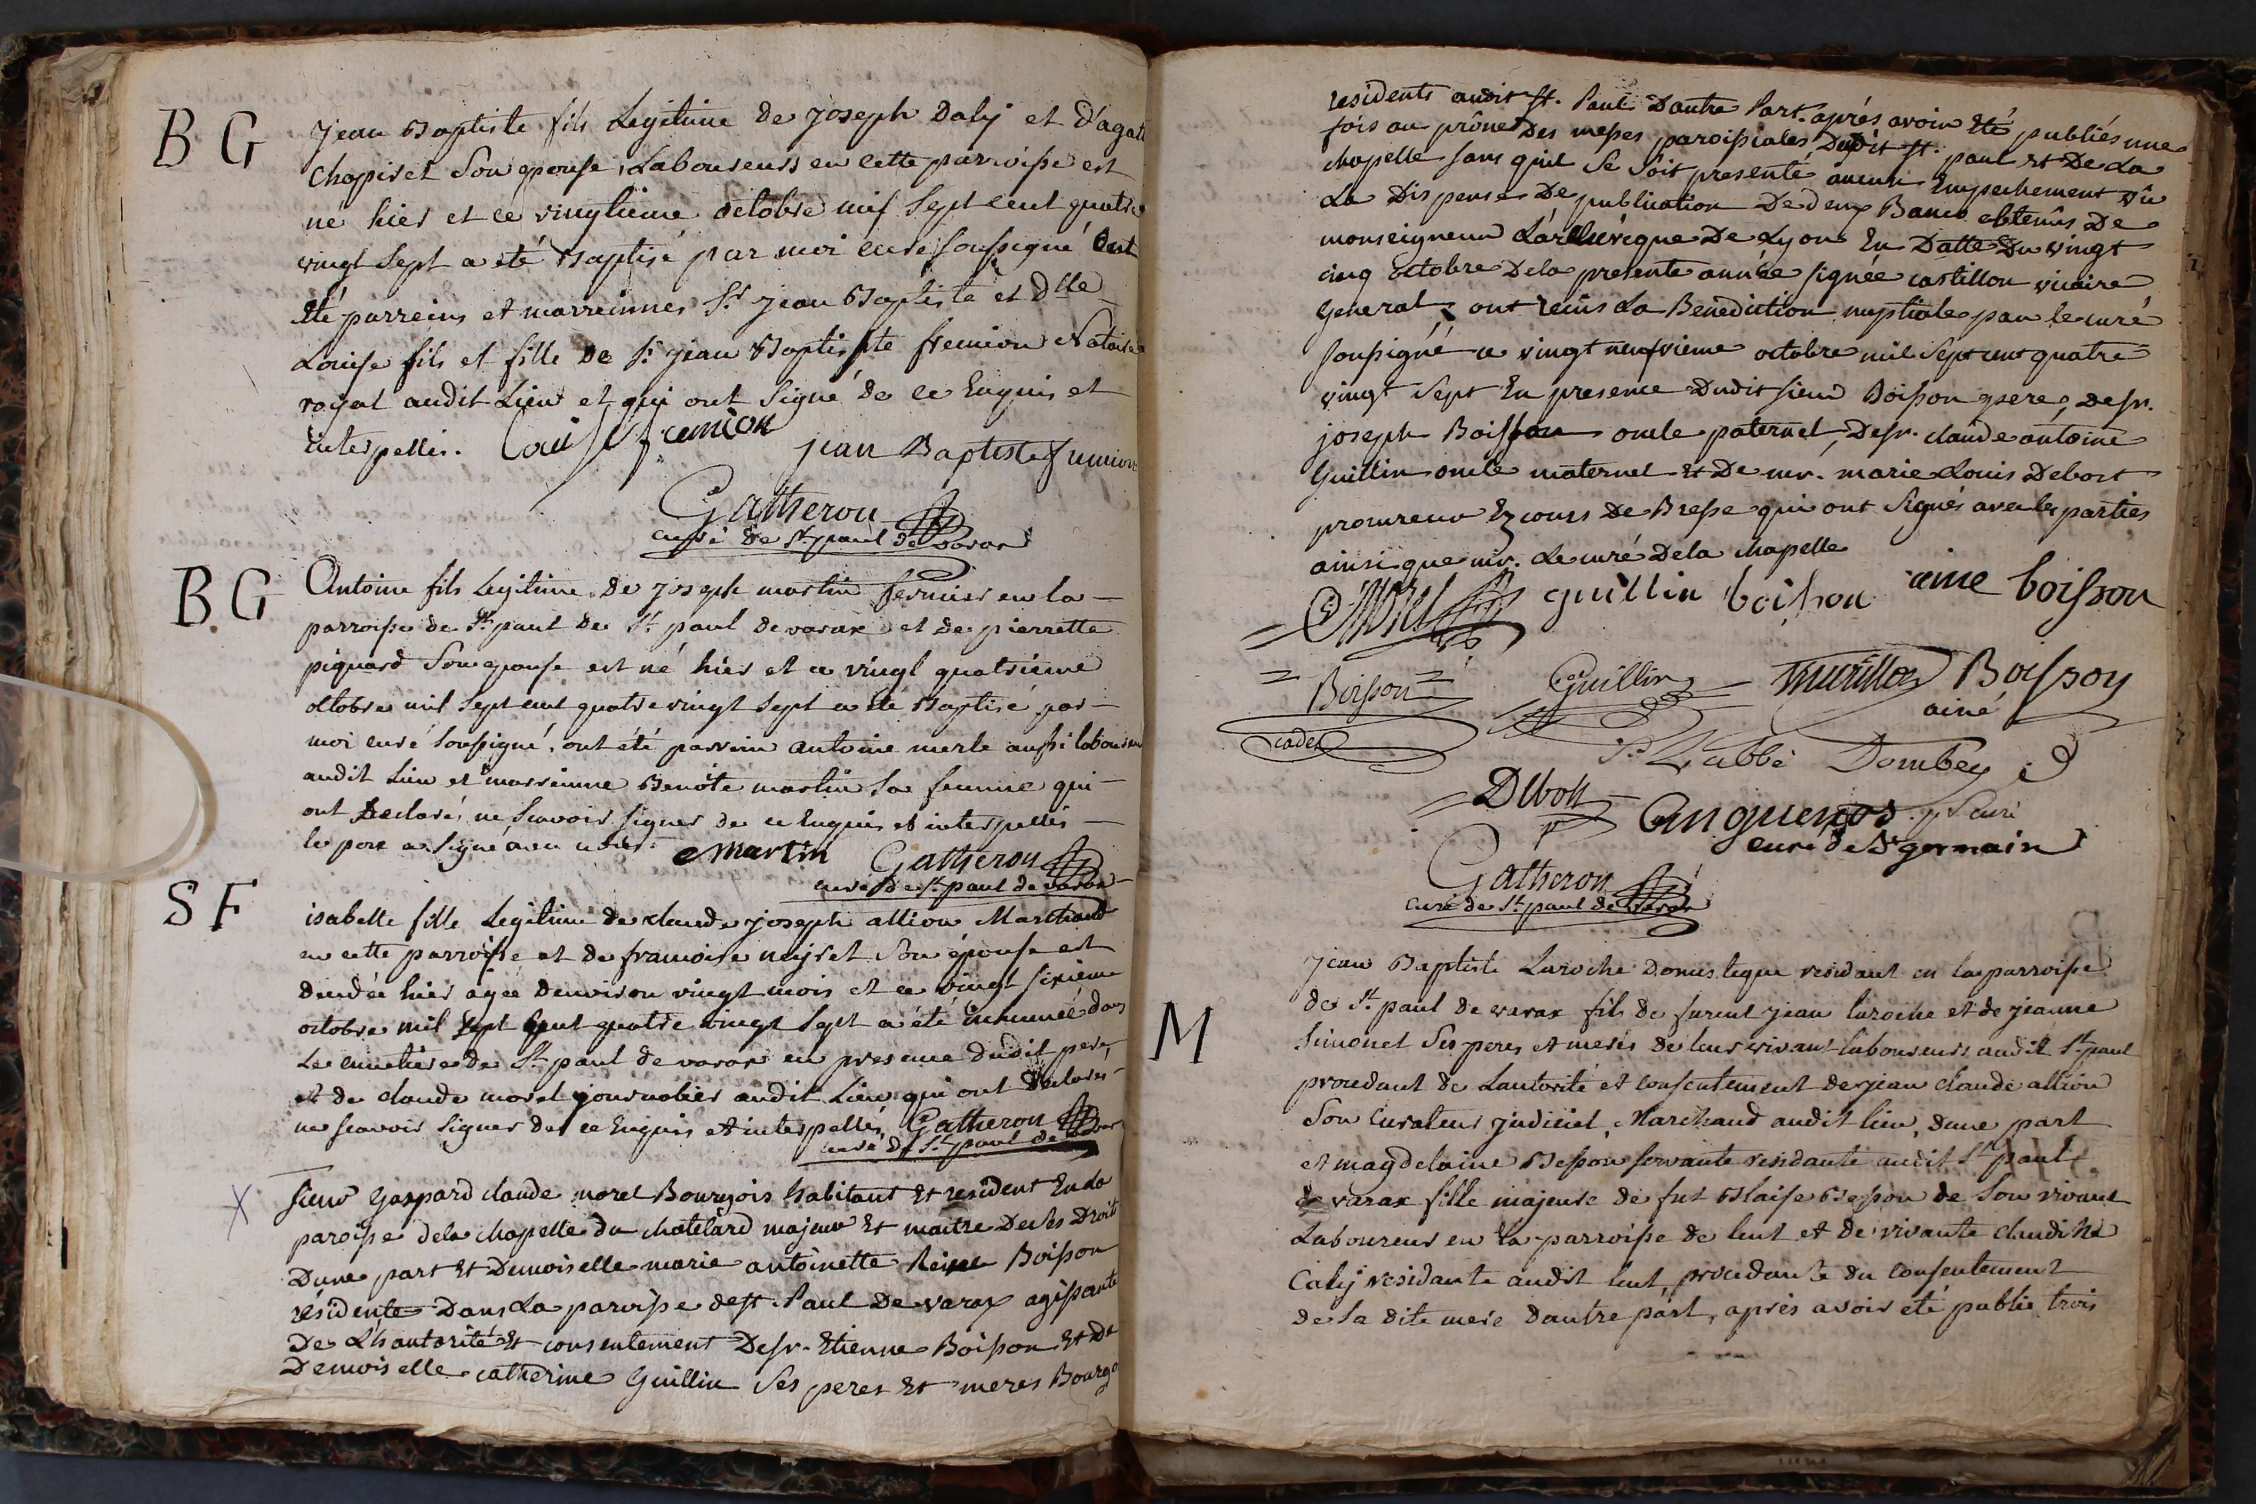 B G
jean Baptiste fils Legitime de joseph Daly et d'agate
chapiset son epouse, Laboureurs en cette parroisse est
né hier et ce vingtieme octobre mil sept cent quatre
vingt sept a eté Baptisé par moi curé soussigné Ont
Eté parreins et marreinnes Sr jean Baptiste et Dlle
Louise fils et fille de Sr jean Baptiste fremion Notaire
royal audit Lieu et qui ont signé de ce Enquis et
interpellés. Louise fremion
jean Baptiste fremion
Gatheron
curé de St paul de varax
B. G
Antoine fils Legitime de joseph martin fermier en la
parroisse de St paul de St paul de varax et de pierrette
piquard son epouse est né hier et ce vingt quatrieme
octobre mil sept cent quatre vingt sept a eté Baptisé par
moi curé soussigné. ont été parrein antoine merle aussi laboureur
audit Lieu et marreinne Benoite martin sa femme qui
ont Declaré ne scavoir signer de ce Enquis et interpellés
le pere a signé avec nous. martin Gatheron
curé de St paul de varax
S F
isabelle fille Legitime de claude joseph allion Marchand
en cette parroisse et de francoise neyret son épouse est
decedée hier agée denviron vingt mois et ce vingt sixieme
octobre mil sept cent quatre vingt sept a été inhumée dans
Le cimetiere de St paul de varax en presence dudit pere,
et de claude morel journalier audit Lieu qui ont declarés
ne scavoir signer de ce Enquis et interpellés Gatheron
curé de St paul de varax
X
sieur Gaspard claude morel Bourgois habitant Et resident En la
paroisse dela chapelle du chatelard majeur Et maitre De ses Droits
Dune part Et Demoiselle marie antoinette Reine Boisson
résidente Dans La paroisse de st. Paul De varax agissante
De L'hautorité Et consentement De sr. Etienne Boisson Et De
Demoiselle catherine Guillin ses peres Et meres Bourgois
residents audit st. Paul D'autre Part. après avoir Eté publiés une
fois au prône Des messes paroissiales Dudit st. paul Et De La
chapelle sans quil se soit presenté aucun Empechement Vû
La Dispense De publication De deux Bancs obtenûs De
monseigneur L'archevèque De Lyon En Datte Du vingt
cinq octobre Dela presente année signée castillon vicaire
General, ont recûs La Benediction nuptiale par le curé
soussigné ce vingt neufvieme octobre mil sept cent quatre
vingt sept En presence Dudit sieur Boisson pere, De sr.
joseph Boisson oncle paternel, De sr. claude antoine
Guillin oncle maternel Et De mr. marie Louis Debost
procureur Ez cours De Bresse qui ont signés avec les parties
ainsi que mr. Le curé Dela chapelle
G. Morel guillin boisson reine boisson
Boisson cadet Guillin Boisson ainé
L'abbé Dombey
Debost
curé de St germain
Gatheron
curé de St paul de varax
M
jean Baptiste Laroche Domestique residant en la parroisse
de St paul de varax fils de furent jean laroche et de jeanne
simonet ses peres et meres de leur vivant laboureurs audit St paul
procedant de Lautorité et consentement de jean claude allion
son curateur judiciel, Marchand audit lieu, dune part
et magdelaine Besson servante residante audit St paul
de varax fille majeure de fut Blaise Besson de son vivant
Laboureur en la parroisse de lent et de vivante claudine
Caly residante audit lent, procedante du consentement
de la dite mere dautre part, après avoir eté publié trois